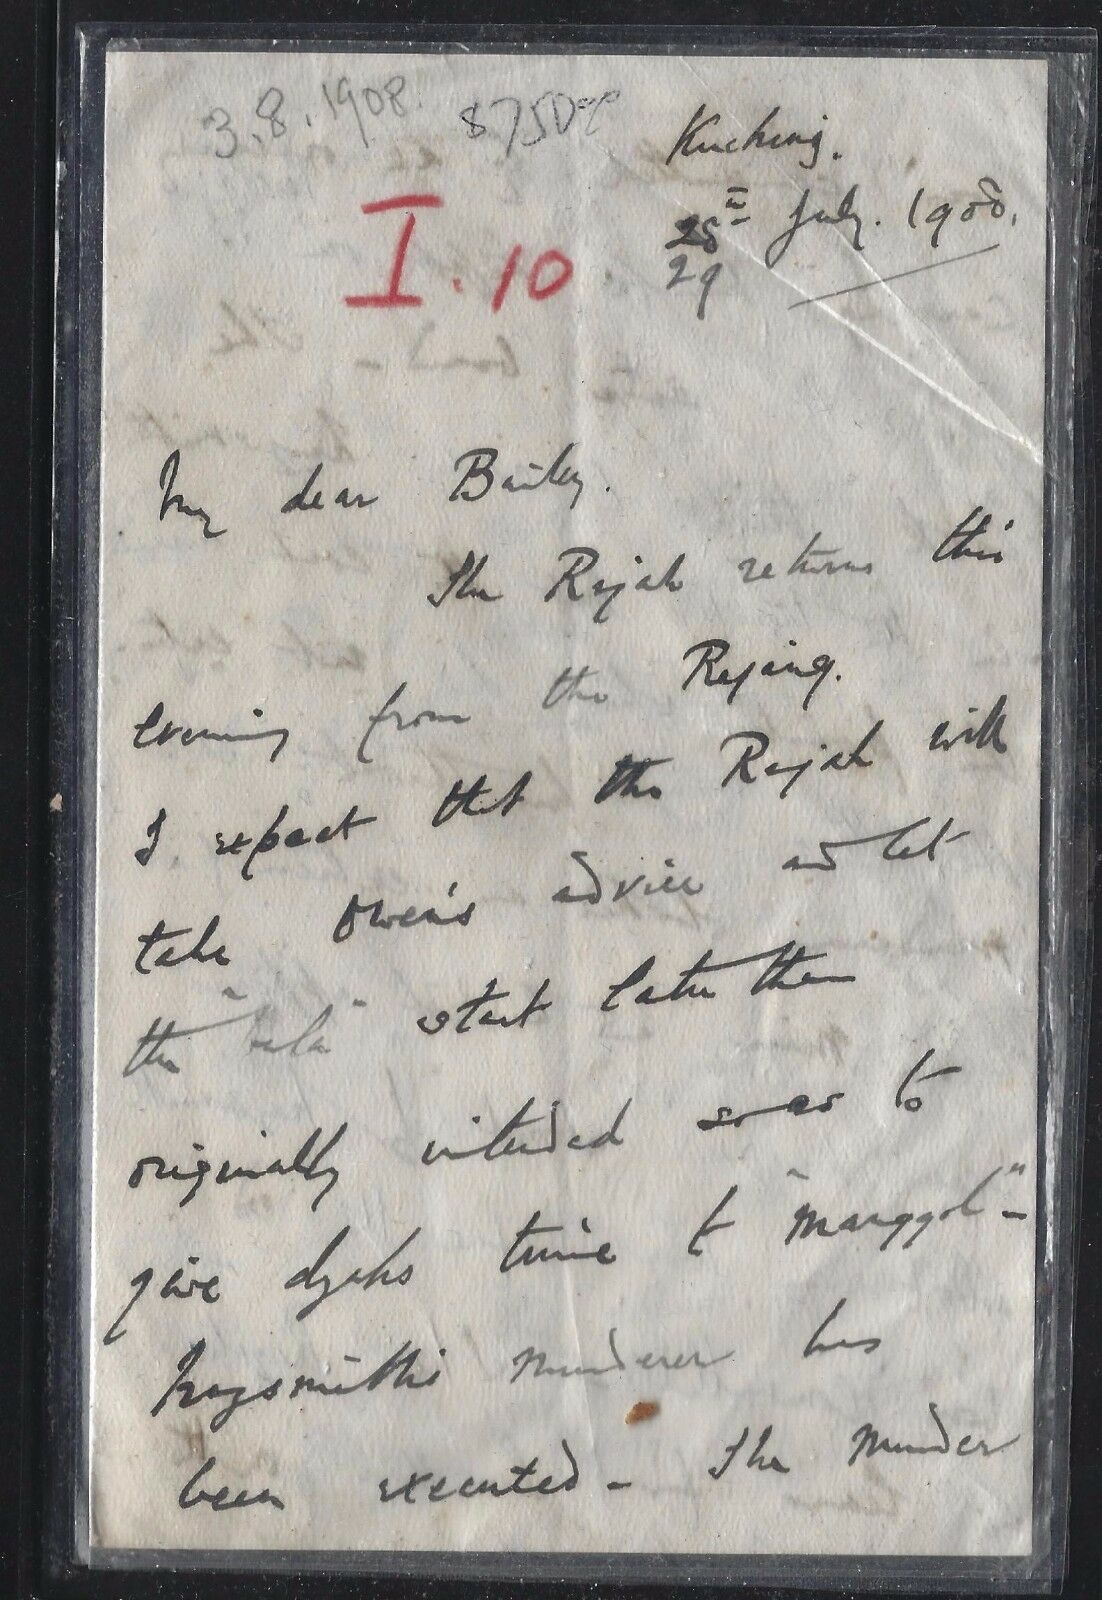 3.8.1908. 8750
Kuching.
28th July. 1908.
29
I.10
My dear Bailey.
The Rajah returns this
evening from the Rejang.
I expect that the Rajah will
take Owen's advice and let
the "bala" start later than
originally intended so as to
give dyaks time to "manggol" -
murderer has
been executed - The murder